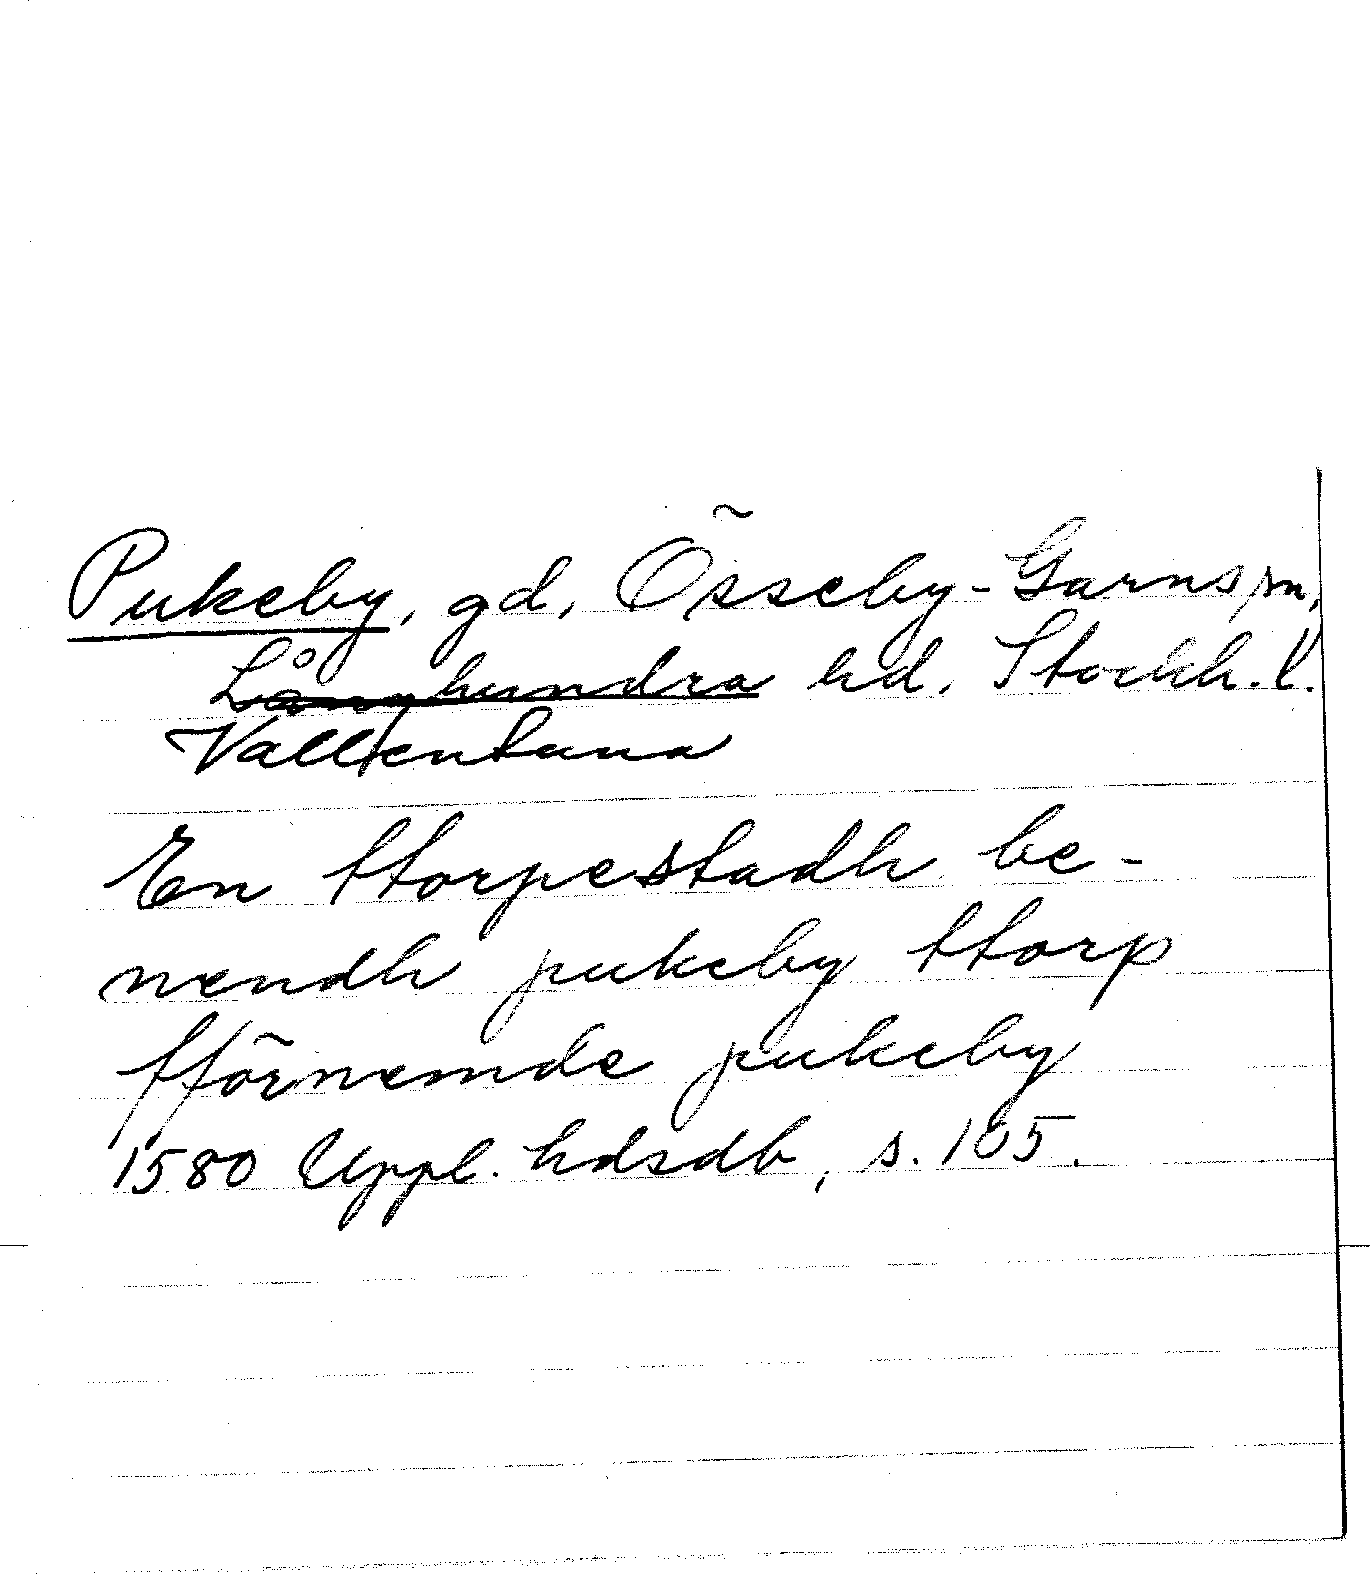 Pukeby, gd, Össeby-Garns sn,
Långhundra hd, Stockh. l.
Vallentuna
En ttorpestadh be-
nendh pukeby ttorp
fförnemde pukeby
1580 Uppl. hdsdb, s. 105.